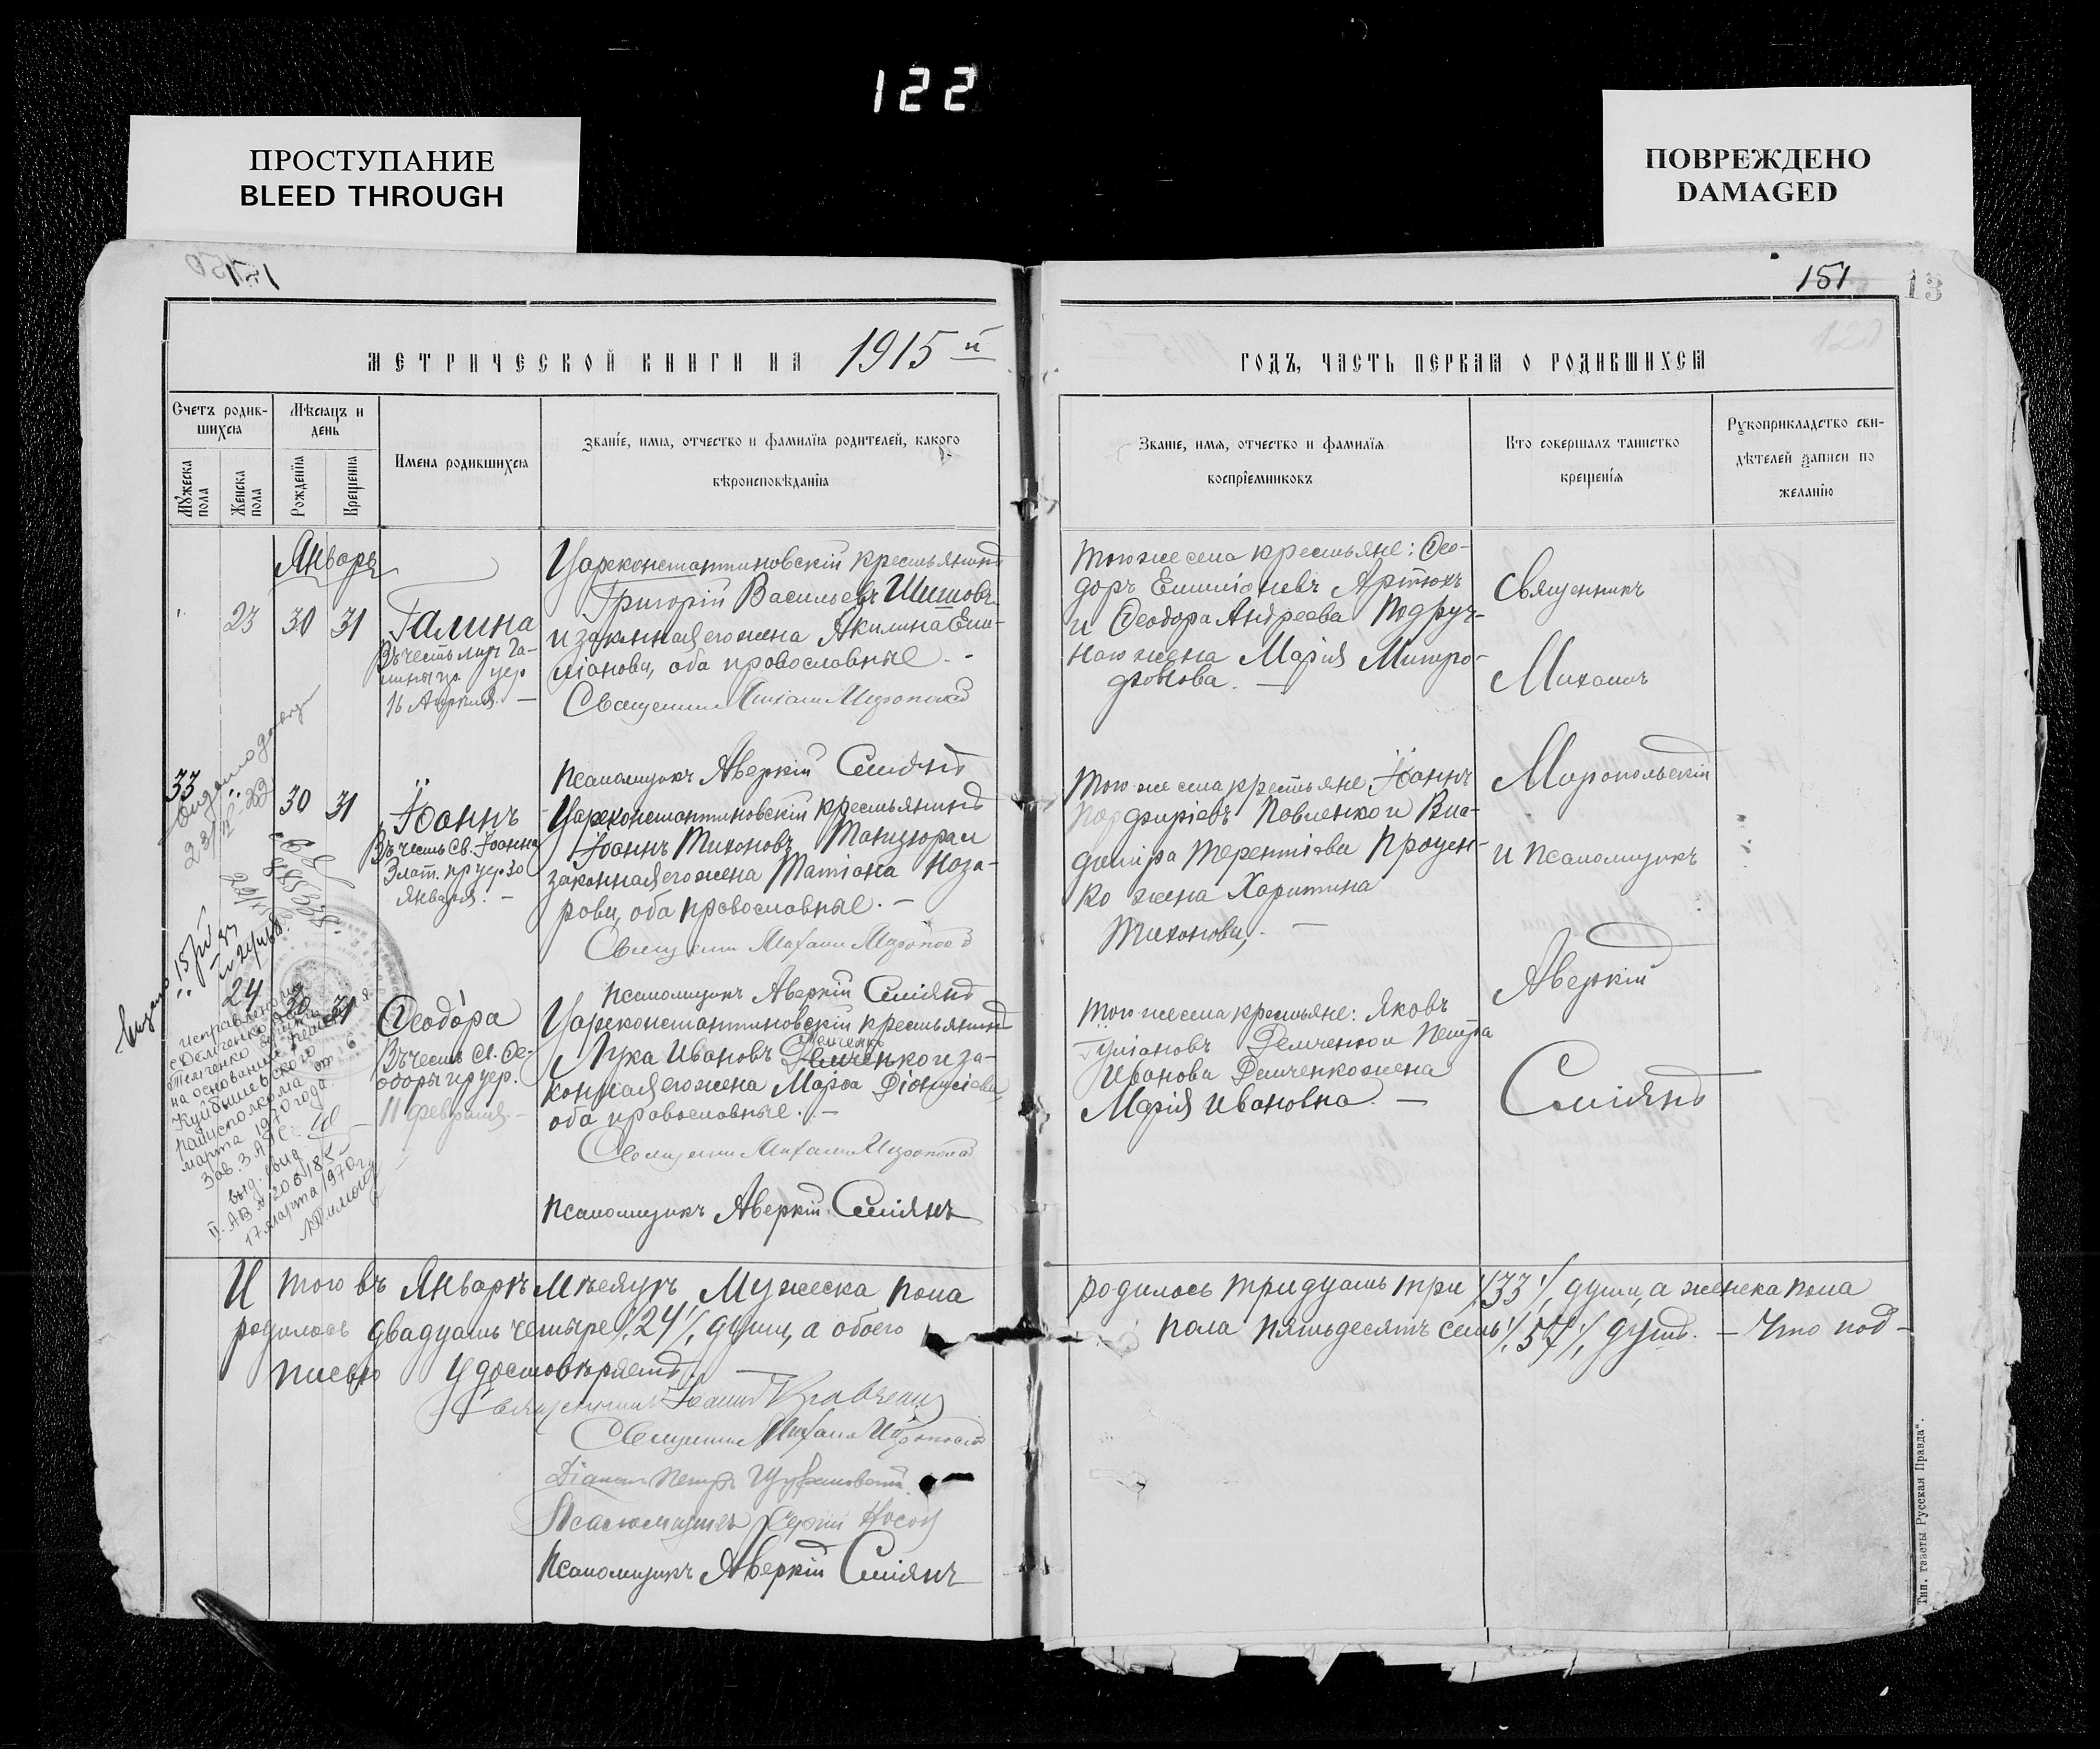 122
ПРОСТУПАНИЕ
BLEED THROUGH
ПОВРЕЖДЕНО
DAMAGED
151
13
МЕТРИЧЕСКОЙ КНИГИ НА 1915 й
ГОДЪ, ЧАСТЬ ПЕРВАЯ О РОДИВШИХСЯ
Счетъ родив-
шихся
Мужеска пола
Женска пола
Мѣсяцъ и
день
Рожденія
Крещенія
Имена родившихся
Званіе, имя, отчество и фамилія родителей, какого
вѣроисповѣданія
Званіе, имя, отчество и фамилія
воспріемниковъ
Кто совершалъ таинство
крещенія
Рукоприкладство сви-
дѣтелей записи по
желанію
Январь
23 30 31
Галина
Въ честь
16 Апрѣля. —
Цареконстантиновскій крестьянинъ
Григорій Васильевъ
и законная его жена Акилина Еми-
ліанова, оба православные. -
Священникъ Михаилъ
Псаломщикъ Аверкій Смiянъ
Того же села крестьяне: Ѳео-
доръ Емиліановъ Артюхъ
и Ѳеодора Андреева Подруч-
наго жена Марія Митро-
фонова. —
33 30 31
Іоаннъ
Въ честь Св. Іоанна
Злат. пр. цер. 30
Января. —
Цареконстантиновскій крестьянинъ
Іоаннъ Тихоновъ Танцюра и
законная его жена Татіана Наза-
рова, оба православные. —
Священникъ Михаилъ
Псаломщикъ Аверкій Сміянъ
Того же села крестьяне Іоаннъ
Порфиріевъ Павленко и Вла-
диміра Терентіева Процен-
ко жена Харитина
Тихонова. —
24 30 31
Ѳеодора
Въ честь Св. Ѳе-
одоры пр. цер.
11 февраля. —
Цареконстантиновскій крестьянинъ
Лука Ивановъ Демченко и за-
Темченко
конная его жена Марѳа Діонисіева
оба православные. —
Священникъ Михаилъ
Псаломщикъ Аверкій Сміянъ
Того же села крестьяне: Яковъ
Демченко и Петра
Иванова Демченко жена
Марія Ивановна —
Священникъ
Михаилъ
Миропольскій
и псаломщикъ
Аверкій
Сміянъ
Выдано
исправлена фамилия
с Демченко на
Темченко
на основании решения
Куйбышевского
райисполкома от 6
марта 1970 года.
Зав. ЗАГС:
выд. свид.
II-АВ № 206185
17 марта 1970 г.
Итого въ Январѣ мѣсяцѣ мужеска пола
родилось тридцать три /33/ души, а женска пола
родилось двадцать четыре /24/ души, а обоего
пола пятьдесятъ семь /57/ душъ. — Что под-
писью удостовѣряемъ. —
Священникъ Іоаннъ Кравченко
Священникъ Михаилъ
Діаконъ Петръ
Псаломщикъ Сергій Носов
Псаломщикъ Аверкій Сміянъ
Тип. газеты Русская Правда“.